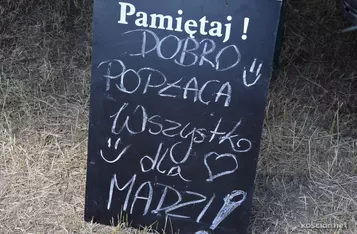 Pamiętaj !
DOBRO
POPŁACA
Wszystko
dla
MARZI
koscian.net